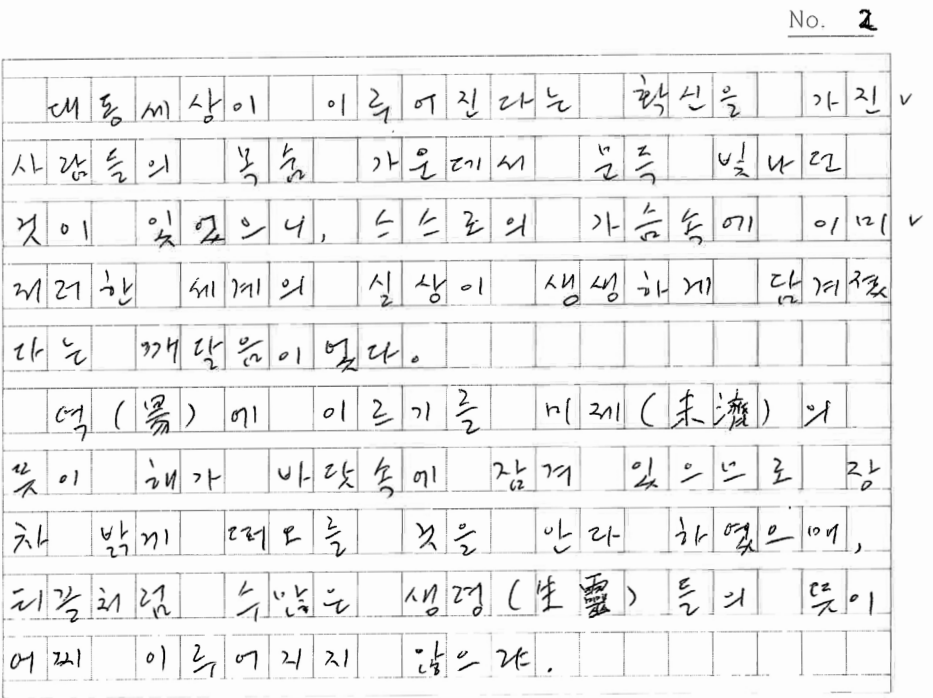 No. 2
대동세상이 이루어진다는 확신을 가진 ∨
사람들의 목숨 가운데서 문득 빛나던
것이 있었으니, 스스로의 가슴속에 이미 ∨
저러한 세계의 실상이 생생하게 담겨졌
다는 깨달음이었다。
역(易)에 이르기를 미제(未濟)의
뜻이 해가 바닷속에 잠겨 있으므로 장
차 밝게 떠오를 것을 안다 하였으매,
티끌처럼 수많은 생령(生靈)들의 뜻이
어찌 이루어지지 않으랴.